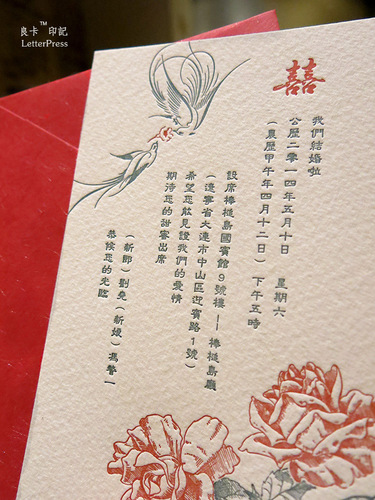 良卡™印記
LetterPress
囍
我們結婚啦
公歷二零一四年五月十日 星期六
(農歷甲午年四月十二日) 下午五時
設席棒棰島國賓館9號樓——棒棰島廳
(遼寧省大連市中山區迎賓路1號)
希望您能見證我們的愛情
期待您的甜蜜出席
(新郎)劉堯(新娘)馮一
恭候您的光臨